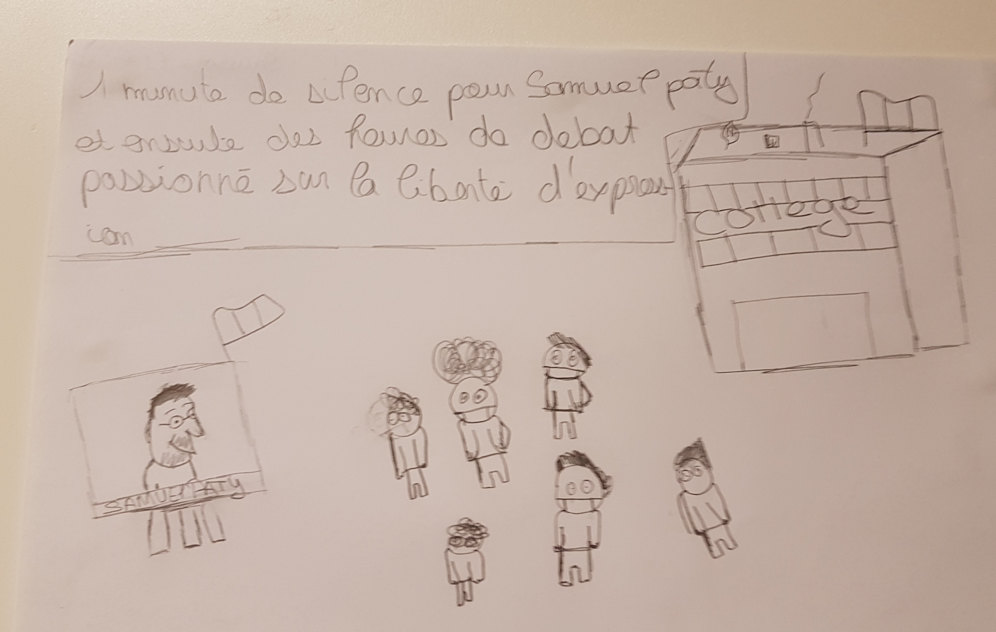 1 minute de silence pour Samuel paty
et ensuite des heures de debat
passionné sur la liberté d'express
ion
college
SAMUEL PATY